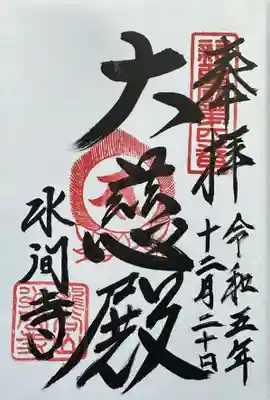 奉拝
令和五年
十二月二十日
大慈殿
水间寺